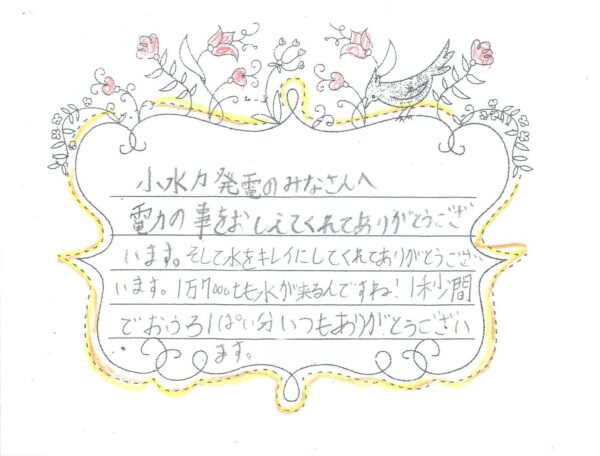 小水力発電のみなさんへ
電力の事をおしえてくれてありがとうござ
います。そして水をキレイにしてくれてありがとうござ
います。1万7000tも水が来るんですね!1秒間
でおふろ1ぱい分いつもありがとうござい
ます。